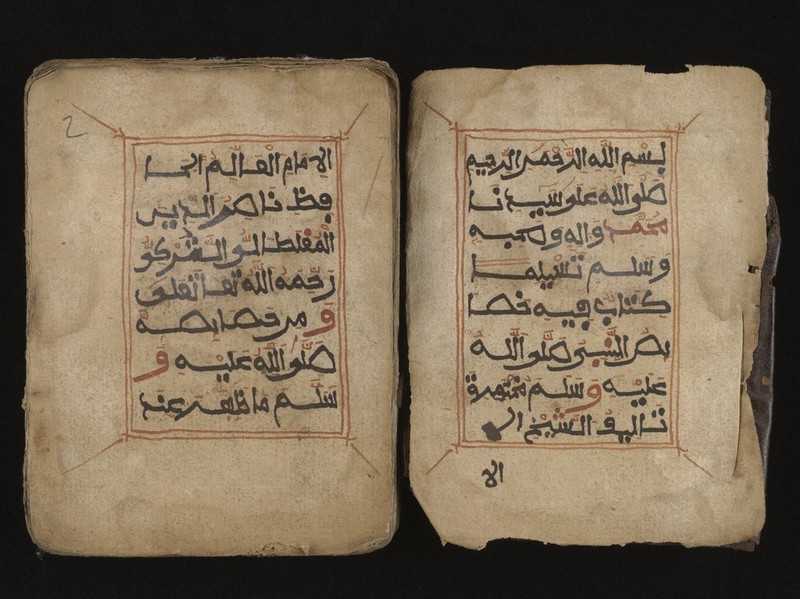 بسم الله الرحمن الرحيم
صلى الله على سيدنا
محمد واله وصحبه
وسلم تسليما
كتاب فيه خصا
يص النبي صلى الله
عليه وسلم مختصرة
تاليف الشيخ ال
الا
2
الامام العالم الحا
فظ ناصر الدين
التركي
رحمه الله تعا تعلى
و من خصايصه
صلى الله عليه و
سلم ما ظهر عند